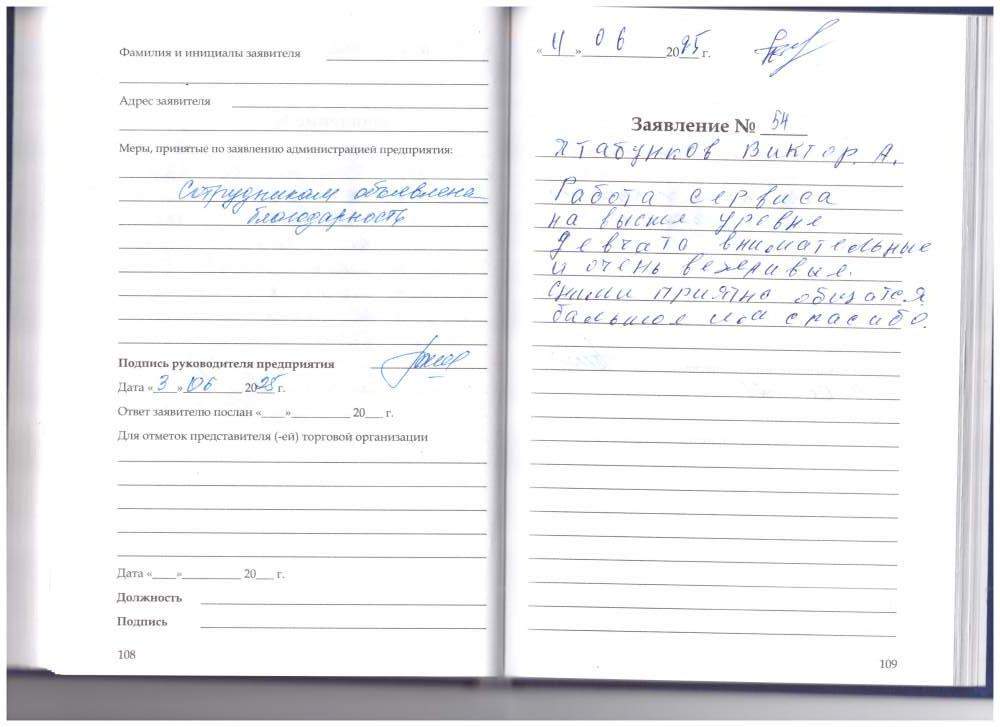 Фамилия и инициалы заявителя
Адрес заявителя
Меры, принятые по заявлению администрацией предприятия:
Сотрудникам объявлена
благодарность
Подпись руководителя предприятия
Дата «3» 06 2025 г.
Ответ заявителю послан «___»__________ 20___ г.
Для отметок представителя (-ей) торговой организации
Дата «___»__________ 20___ г.
Должность
Подпись
108
06 2025 г.
Заявление № 54
Виктор. А.
Работа сервиса
на высшя уровня
Девчата внимательные
и очень вежеривые.
Сними приятно общатся
балшшое спасибо.
109